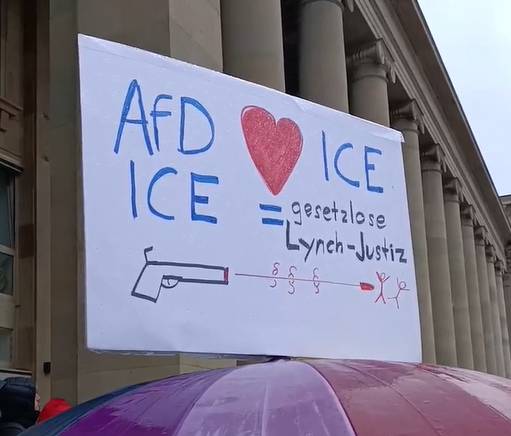 AfD ❤ ICE
ICE = gesetzlose
Lynch-Justiz